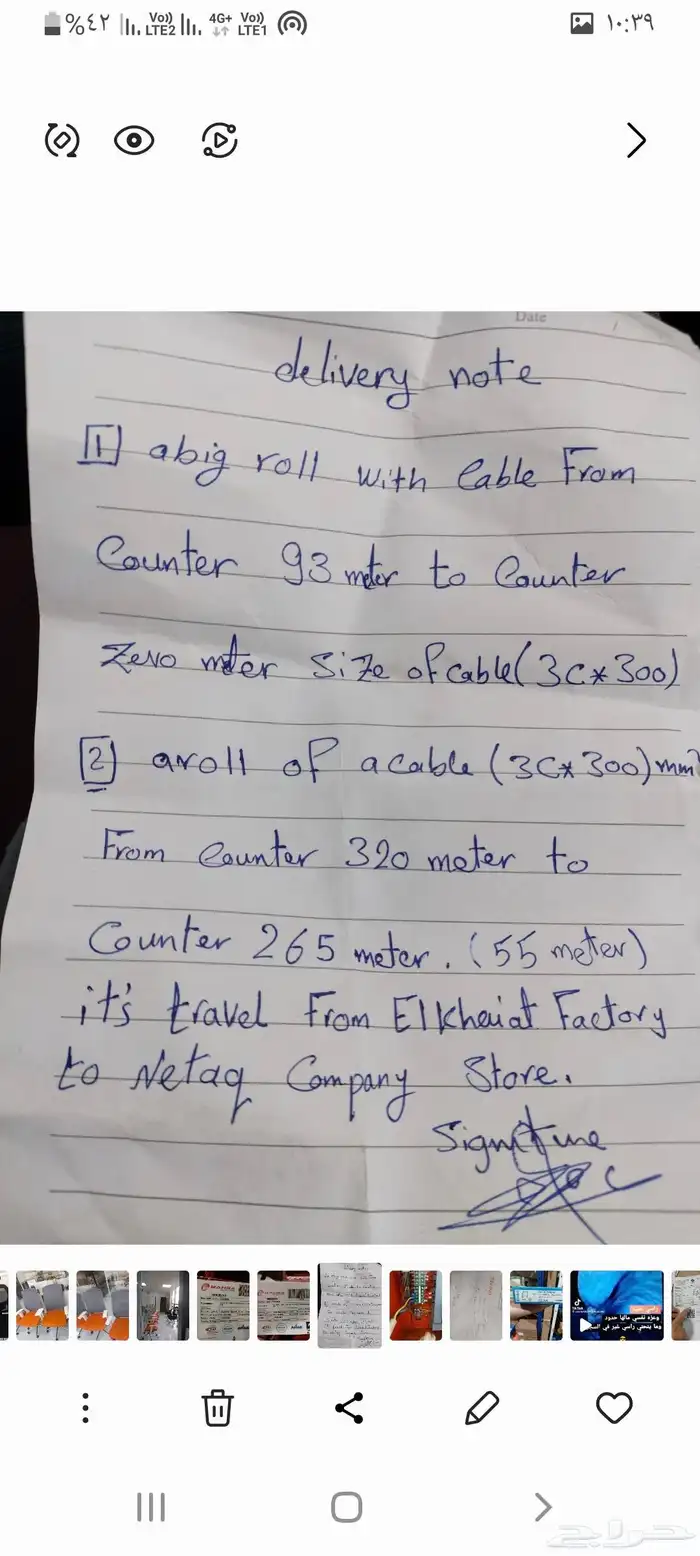 %٤٢ Vo)) LTE2 4G+ Vo)) LTE1 ١٠:٣٩
Date
delivery note
1 a big roll with Cable From
Counter 93 meter to Counter
Zero meter Size of cable (3C*300)
2 a roll of a cable (3C*300) mm²
From Counter 320 meter to
Counter 265 meter. (55 meter)
it's travel From Elkhaiat Factory
to Netaq Company Store.
Signature
حراج